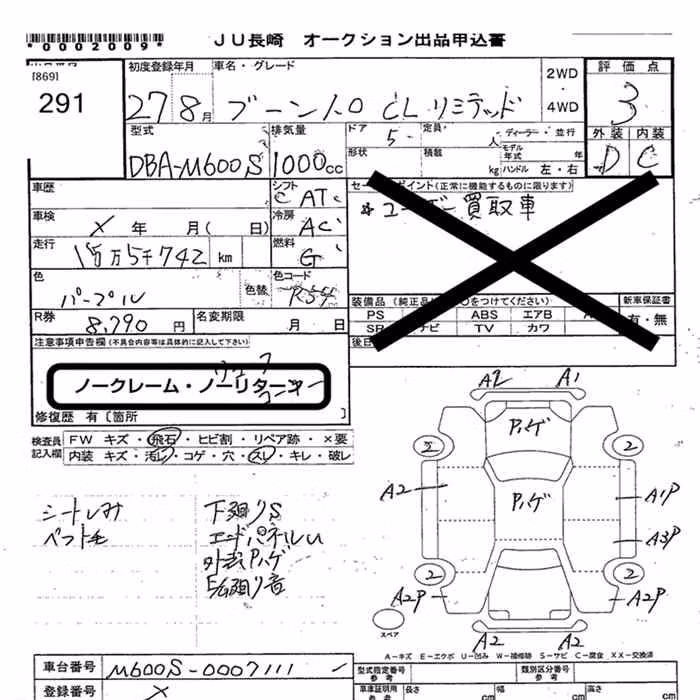 *0002009*
JU長崎 オークション出品申込書
[869]
291
初度登録年月 車名・グレード 2WD・4WD 評価点
27 8月 ブーン 1.0 CL リミテッド 3
型式 排気量 ドア 定員 人 ディーラー・並行 外装 内装
DBA-M600S 1000cc 5 形状 積数 kg モデル年式 年 ハンドル 左・右 D C
車歴 シフト AT
車検 X 年 月( 日) 冷房 AC
走行 15万5千742 km 燃料 G
色 パープル 色替 色コード R59
R券 8,790円 名変期限 月 日
セールスポイント(正常に機能するものに限ります)
ユーザー買取車
装備品(純正品に○をつけてください) 新車保証書
PS ABS エアB 有・無
SR ナビ TV カワ
後日
注意事項申告欄(不具合内容等は具体的に記入して下さい)
ノークレーム・ノーリターン
修復歴 有〔箇所 〕
検査員記入欄 FW キズ・飛石・ヒビ割・リペア跡・×要
内装 キズ・汚れ・コゲ・穴・スレ・キレ・破レ
シートしみ
ペット毛
下廻りS
エンドパネルU
外装Pハゲ
A2 A1
Pハゲ
2 2
A2 Pハゲ A1P
A3P
2 2
A2P A2P
A2 A2
スペア
A-キズ E-エクボ U-凹み W-補修跡 S-サビ C-腐食 XX-交換済
車台番号 M600S-0007111
登録番号 X
型式指定番号 参考 類別区分番号 参考
車庫証明用 参考 長さ cm 幅 cm 高さ cm